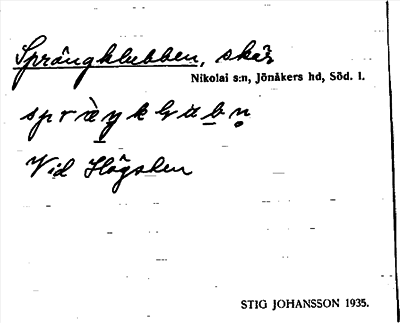 Sprängklubben, skär
Nikolai s:n, Jönåkers hd, Söd. l.
Vid Högsten
STIG JOHANSSON 1935.